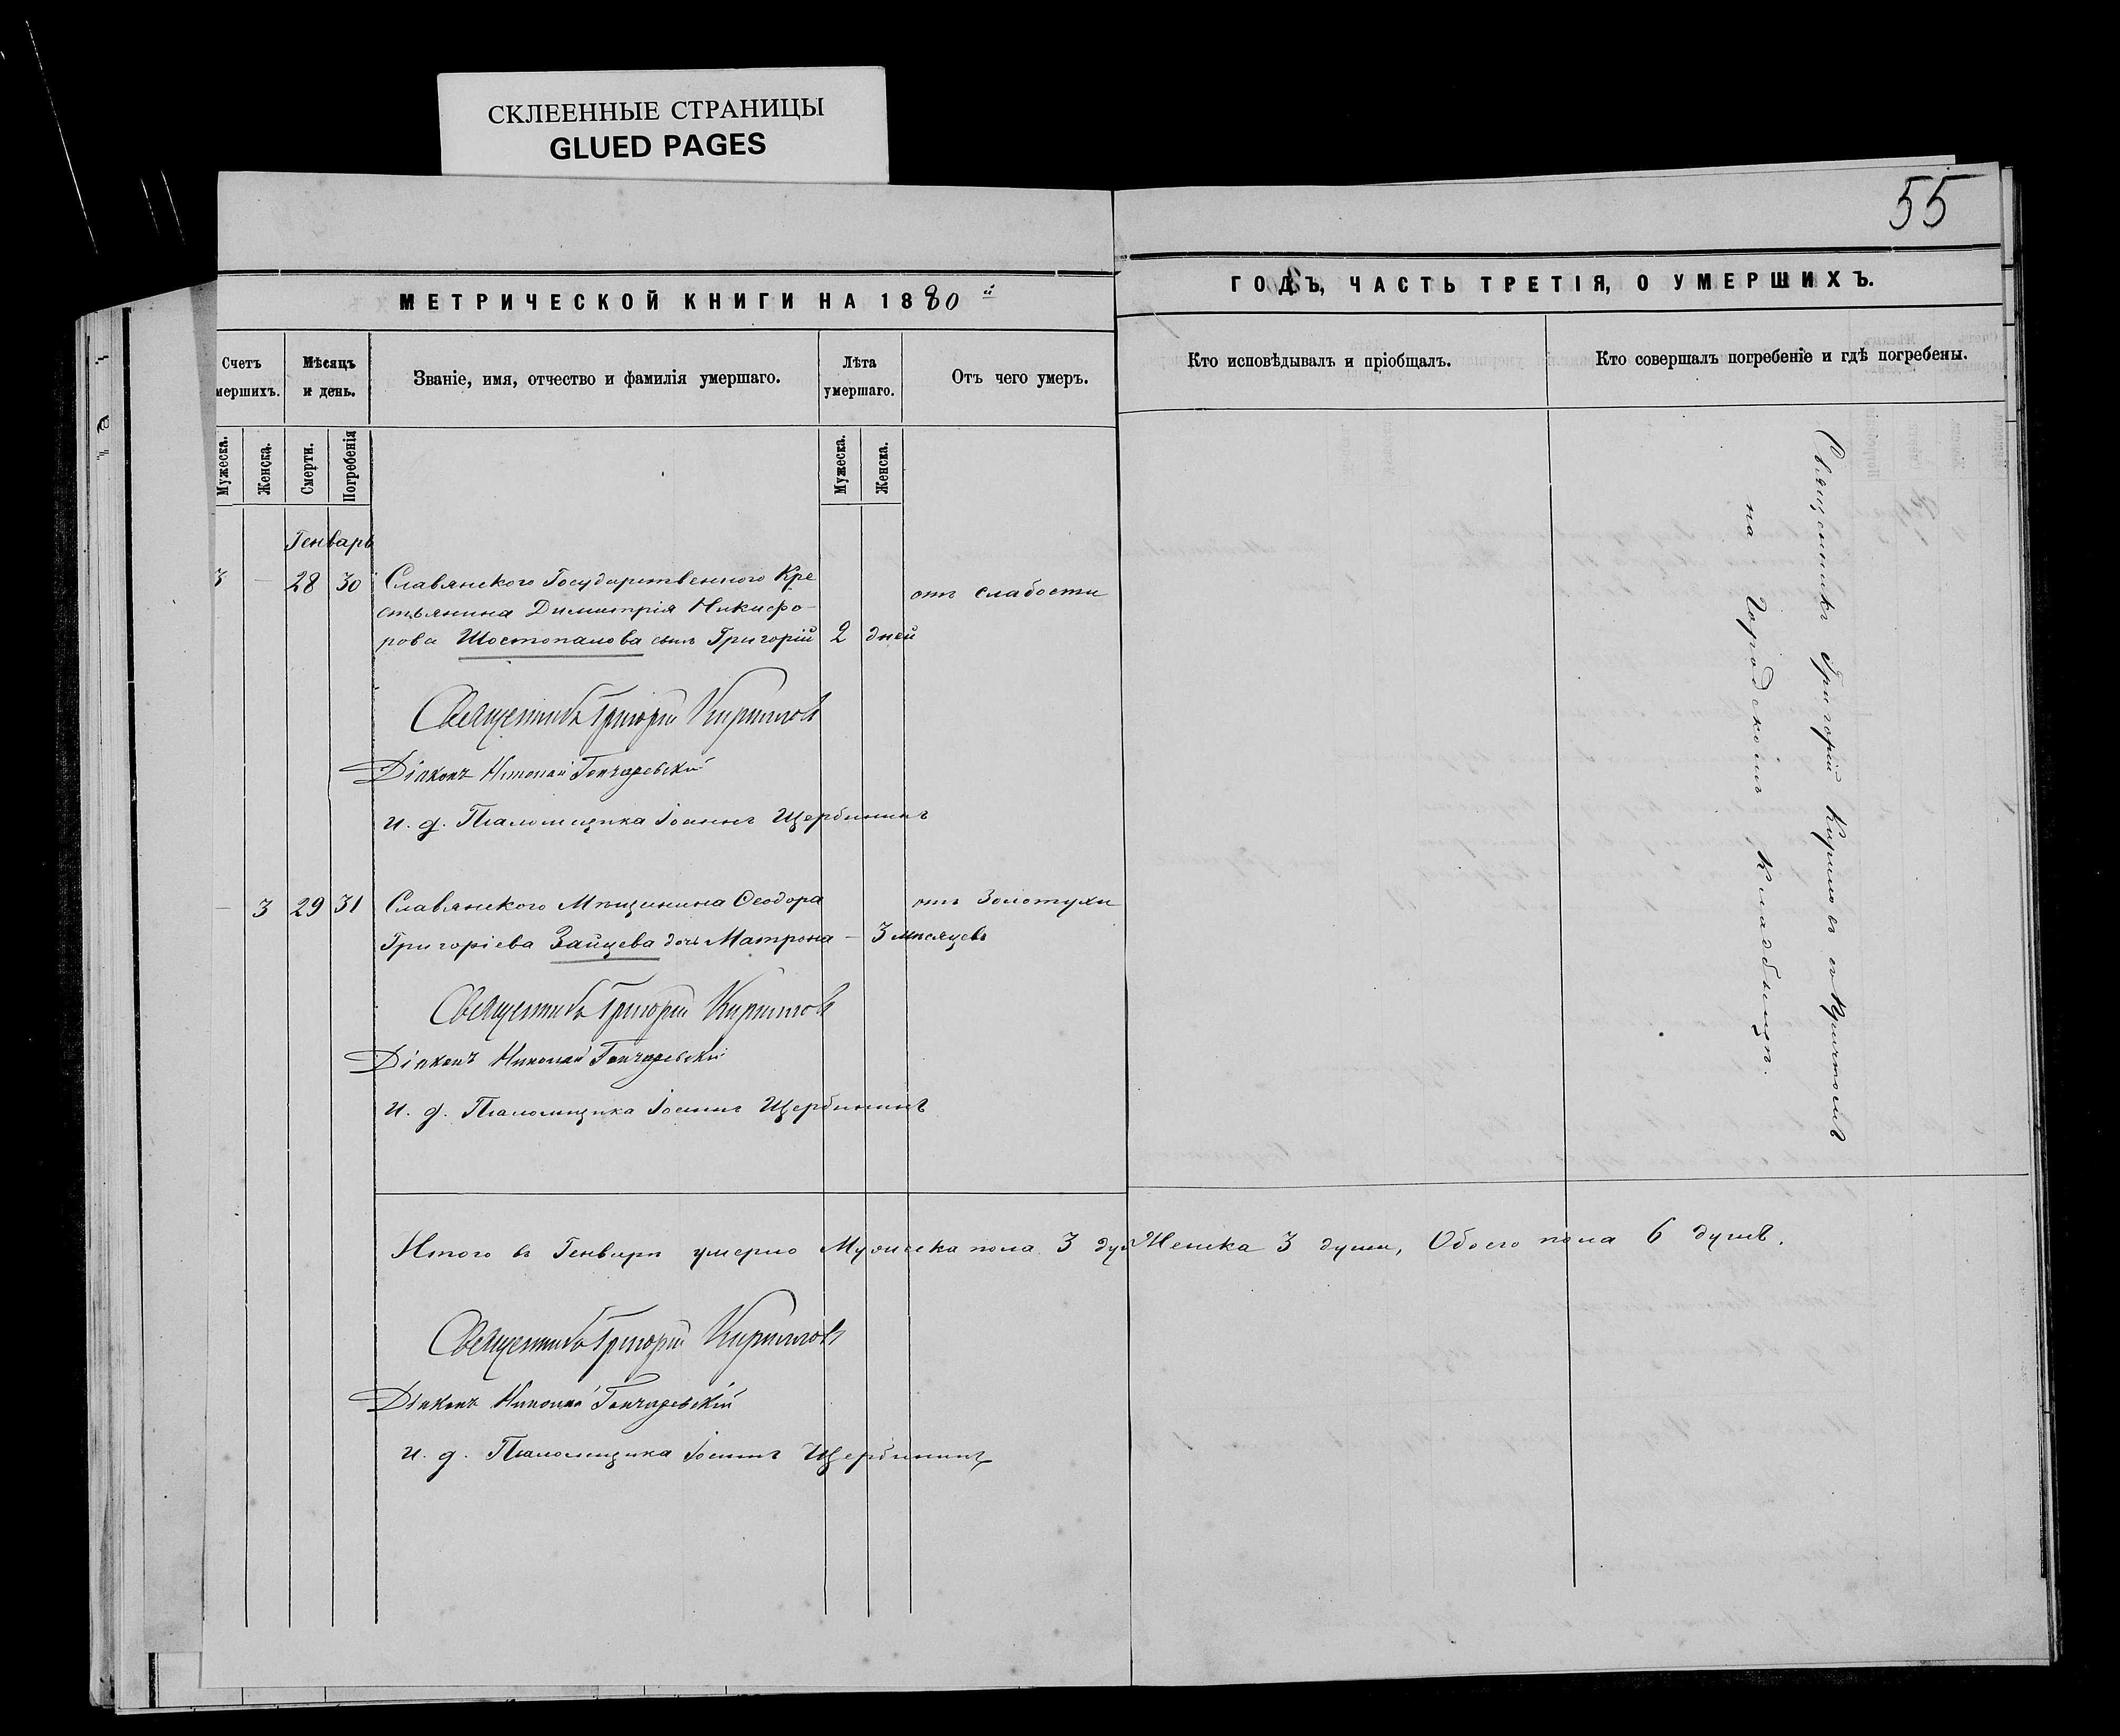 СКЛЕЕННЫЕ СТРАНИЦЫ
GLUED PAGES
55
МЕТРИЧЕСКОЙ КНИГИ НА 1880й
ГОДЪ, ЧАСТЬ ТРЕТІЯ, О УМЕРШИХЪ.
Счетъ
мершихъ.
Мѣсяцъ
и день.
Званіе, имя, отчество и фамилія умершаго.
Лѣта
умершаго.
Отъ чего умеръ.
Кто исповѣдывалъ и пріобщалъ.
Кто совершалъ погребеніе и гдѣ погребены.
Мужеска.
Женска.
Смерти.
Погребенія
Мужеска.
Женска.
Генварь
3 – 28 30 Славянскаго Государственного Кре
отъ слабости
стьянина Димитрія Никифо-
рова Шостопалова сынъ Григорій 2 дней
Священникъ Григорій Кириловъ
Діаконъ Николай Гончаревскій
И. д. Псаломщика Іоаннъ Щербининъ
– 3 29 31 Славянскаго Мѣщанина Ѳеодора
отъ Золотухи
Григоріева Зайцева дочь Матрона – 3 мѣсяцевъ
Священникъ Григорій Кириловъ
Діаконъ Николай Гончаревскій
И. д. Псаломщика Іоаннъ Щербининъ
Священникъ Григорій Кириловъ съ Причтомъ
на Городскомъ Кладбищѣ.
Итого въ Генварѣ умерло Мужеска пола 3 душ Женска 3 души, Обоего пола 6 душъ.
Священникъ Григорій Кириловъ
Діаконъ Николай Гончаревскій
И. д. Псаломщика Іоаннъ Щербининъ